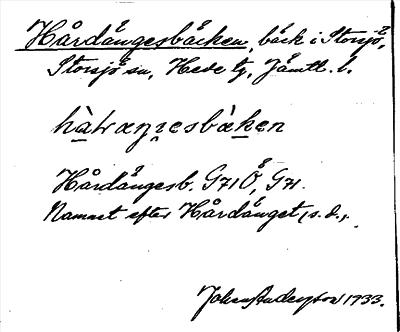 Hårdängesbäcken, bäck i Storsjö,
Storsjö sn, Hede tg, Jämtl. l.
Hårdängesb. G71Ö, G71.
Namnet efter Hårdänget, s. d.,
Johan Anderson 1933.